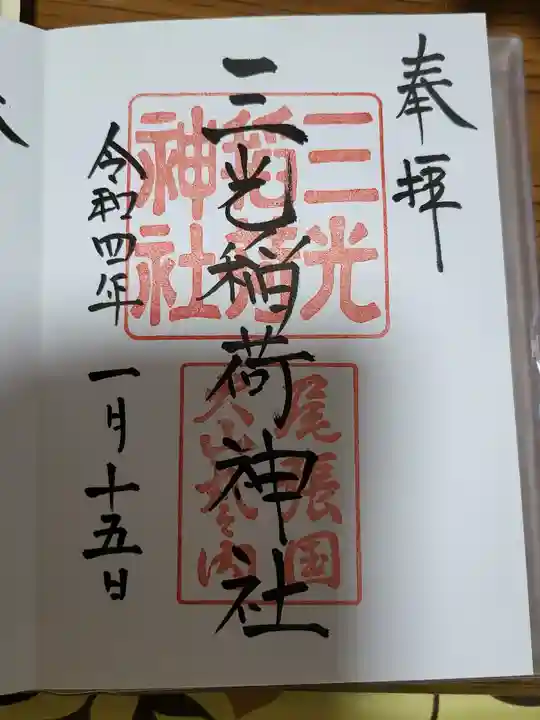 奉拝
三光稲荷神社
三光
稲荷
神社
尾張国
犬山城内
令和四年 一月十五日